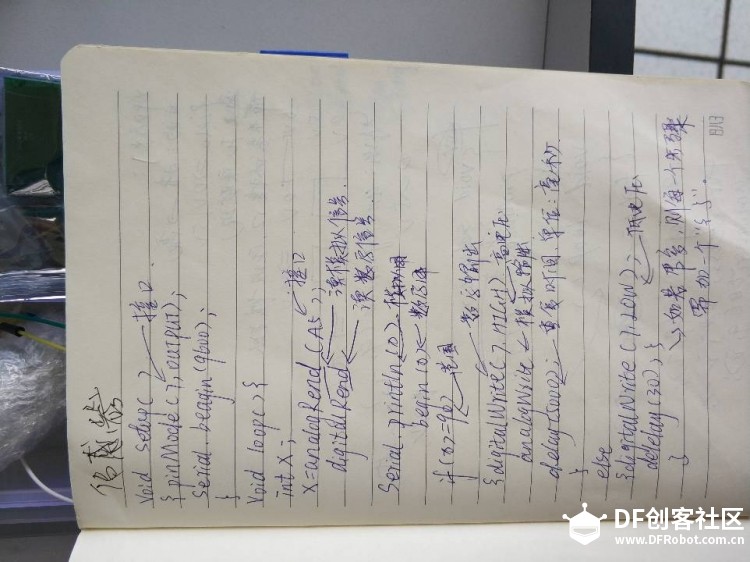 void setup()
{pinMode(7,output); 接口
Serial.beagin(9600);
}
void loop(){
int x;
x=analogRead(A5); 接口
读模拟信号
digitalRead 读数字信号
Serial.println(0)
begin(0) 数字
if(0>=90) 范围
{digitalWrite(7,HIGH) 数字输出
高电压
analogWrite 模拟输出
delay(5000); 时间 单位:毫秒
}
else
{digitalWrite(7,LOW); 低电压
delelay(30);}
} 如果 多,则每一个
需加一个"
DF创客社区
www.DFRobot.com.cn